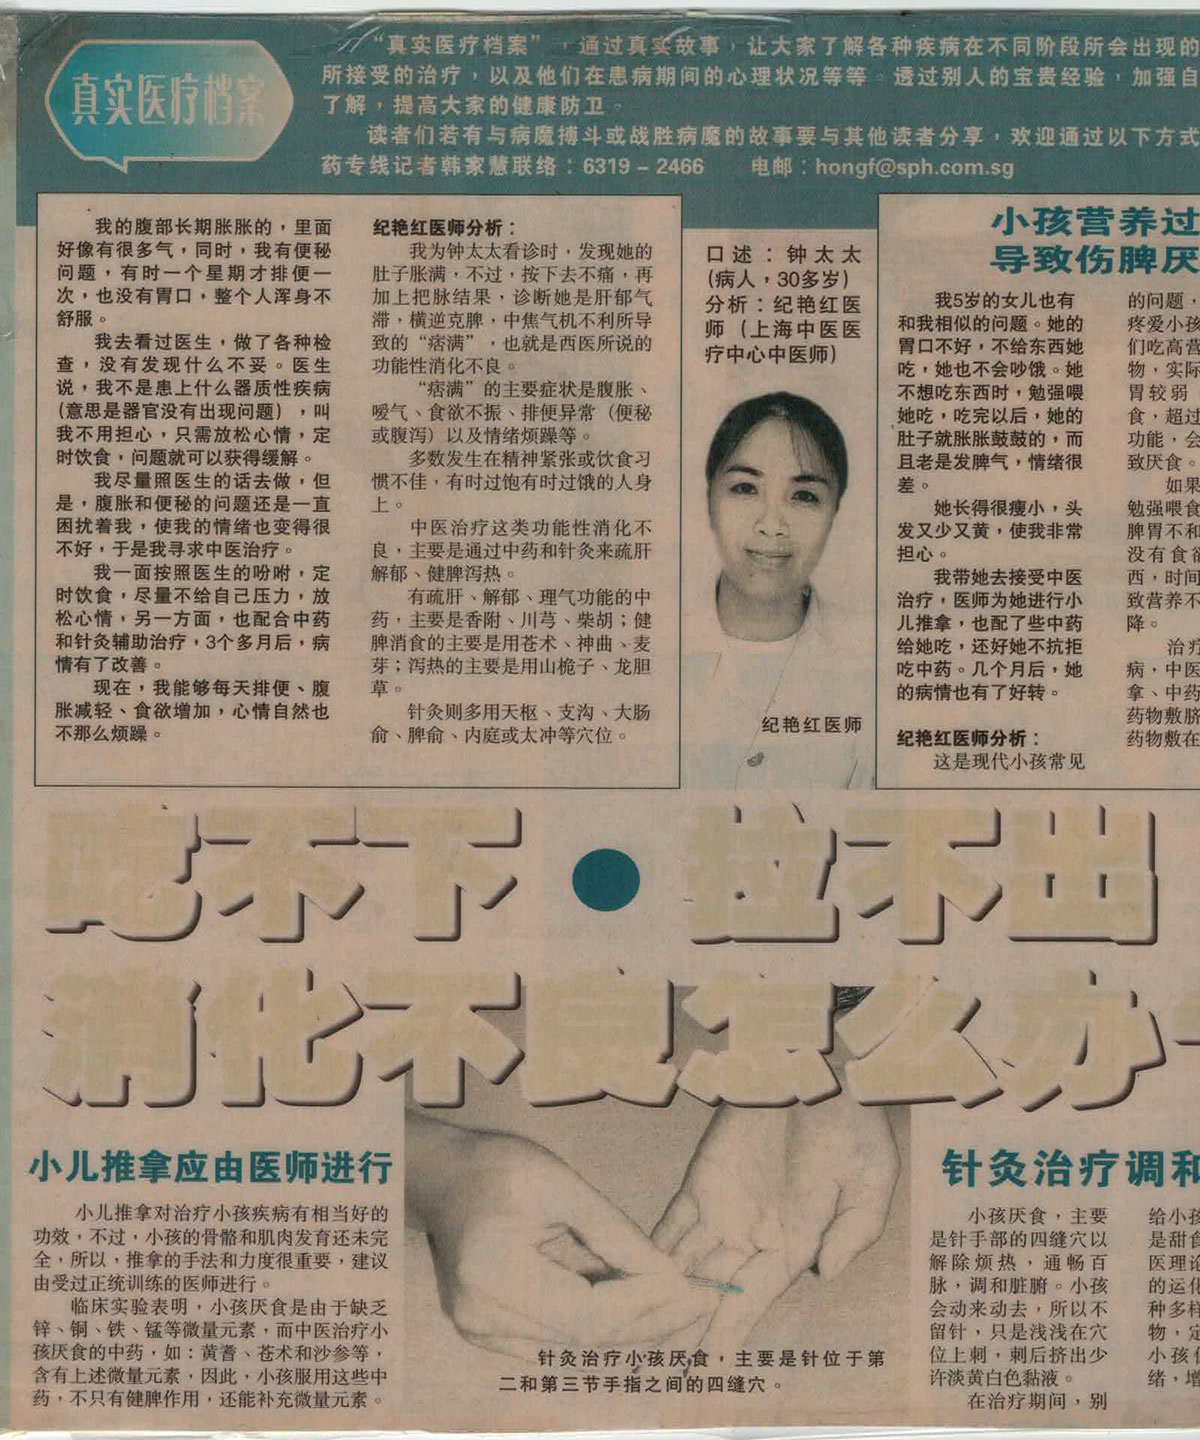 真实医疗档案
“真实医疗档案”，通过真实故事，让大家了解各种疾病在不同阶段所会出现的
所接受的治疗，以及他们在患病期间的心理状况等等。透过别人的宝贵经验，加强自
了解，提高大家的健康防卫。
读者们若有与病魔搏斗或战胜病魔的故事要与其他读者分享，欢迎通过以下方式
药专线记者韩家慧联络：6319－2466 电邮：hongf@sph.com.sg
我的腹部长期胀胀的，里面
好像有很多气，同时，我有便秘
问题，有时一个星期才排便一
次，也没有胃口，整个人浑身不
舒服。
我去看过医生，做了各种检
查，没有发现什么不妥。医生
说，我不是患上什么器质性疾病
(意思是器官没有出现问题)，叫
我不用担心，只需放松心情，定
时饮食，问题就可以获得缓解。
我尽量照医生的话去做，但
是，腹胀和便秘的问题还是一直
困扰着我，使我的情绪也变得很
不好，于是我寻求中医治疗。
我一面按照医生的吩咐，定
时饮食，尽量不给自己压力，放
松心情，另一方面，也配合中药
和针灸辅助治疗，3个多月后，病
情有了改善。
现在，我能够每天排便、腹
胀减轻、食欲增加，心情自然也
不那么烦躁。
纪艳红医师分析：
我为钟太太看诊时，发现她的
肚子胀满，不过，按下去不痛，再
加上把脉结果，诊断她是肝郁气
滞，横逆克脾，中焦气机不利所导
致的“痞满”，也就是西医所说的
功能性消化不良。
“痞满”的主要症状是腹胀、
嗳气、食欲不振、排便异常（便秘
或腹泻）以及情绪烦躁等。
多数发生在精神紧张或饮食习
惯不佳，有时过饱有时过饿的人身
上。
中医治疗这类功能性消化不
良，主要是通过中药和针灸来疏肝
解郁、健脾泻热。
有疏肝、解郁、理气功能的中
药，主要是香附、川芎、柴胡；健
脾消食的主要是用苍术、神曲、麦
芽；泻热的主要是用山栀子、龙胆
草。
针灸则多用天枢、支沟、大肠
俞、脾俞、内庭或太冲等穴位。
口述：钟太太
(病人，30多岁)
分析：纪艳红医
师（上海中医医
疗中心中医师）
纪艳红医师
小孩营养过
导致伤脾厌
我5岁的女儿也有
和我相似的问题。她的
胃口不好，不给东西她
吃，她也不会吵饿。她
不想吃东西时，勉强喂
她吃，吃完以后，她的
肚子就胀胀鼓鼓的，而
且老是发脾气，情绪很
差。
她长得很瘦小，头
发又少又黄，使我非常
担心。
我带她去接受中医
治疗，医师为她进行小
儿推拿，也配了些中药
给她吃，还好她不抗拒
吃中药。几个月后，她
的病情也有了好转。
纪艳红医师分析：
这是现代小孩常见
的问题，
疼爱小孩
们吃高营
物，实际
胃较弱
食，超过
功能，会
致厌食。
如果
勉强喂食
脾胃不和
没有食欲
西，时间
致营养不
降。
治疗
病，中医
拿、中药
药物敷脐
药物敷在
吃不下·拉不出
消化不良怎么办
小儿推拿应由医师进行
小儿推拿对治疗小孩疾病有相当好的
功效，不过，小孩的骨骼和肌肉发育还未完
全，所以，推拿的手法和力度很重要，建议
由受过正统训练的医师进行。
临床实验表明，小孩厌食是由于缺乏
锌、铜、铁、锰等微量元素，而中医治疗小
孩厌食的中药，如：黄耆、苍术和沙参等，
含有上述微量元素，因此，小孩服用这些中
药，不只有健脾作用，还能补充微量元素。
针灸治疗小孩厌食，主要是针位于第
二和第三节手指之间的四缝穴。
针灸治疗调和
小孩厌食，主要
是针手部的四缝穴以
解除烦热，通畅百
脉，调和脏腑。小孩
会动来动去，所以不
留针，只是浅浅在穴
位上刺，刺后挤出少
许淡黄白色黏液。
在治疗期间，别
给小孩
是甜食
医理论
的运化
种多样
物，定
小孩保
绪，增